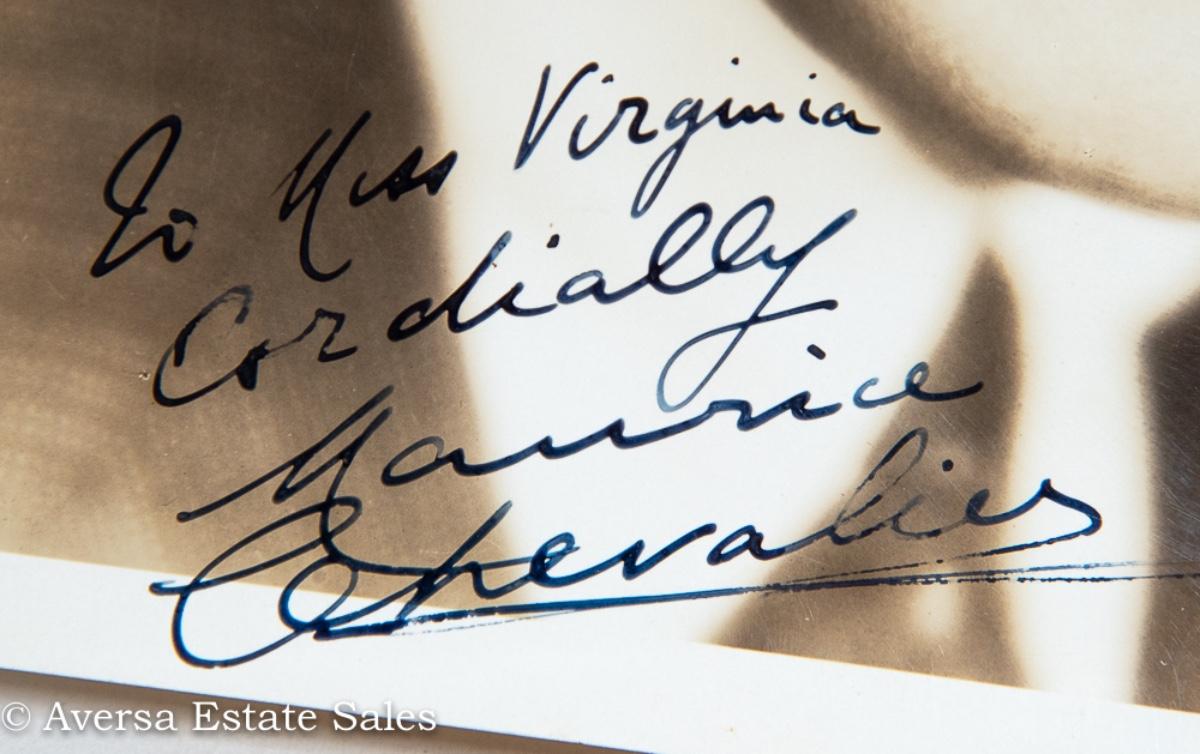 To Miss Virginia
Cordially
Maurice
Chevalier
© Aversa Estate Sales